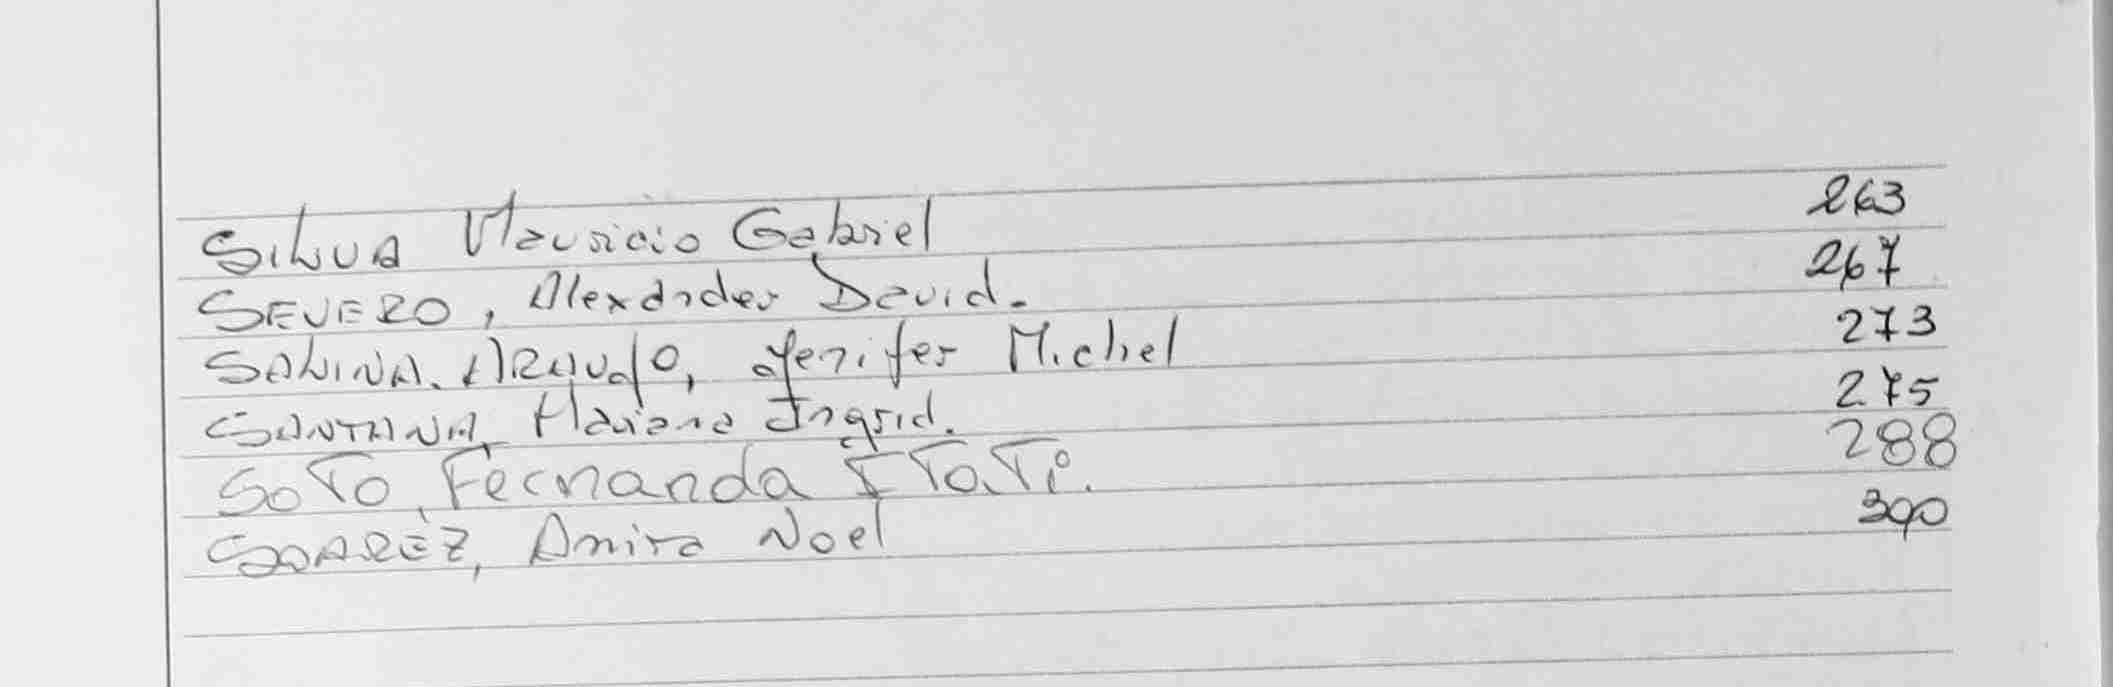 SILVA Mauricio Gabriel 263
SEVERO, Alexander David. 267
SALINA. ARAUJO, Jenifer Michel 273
SANTANA, Mariana Ingrid. 275
SOTO, Fernanda ITaTi. 288
SOAREZ, Amira Noel 390